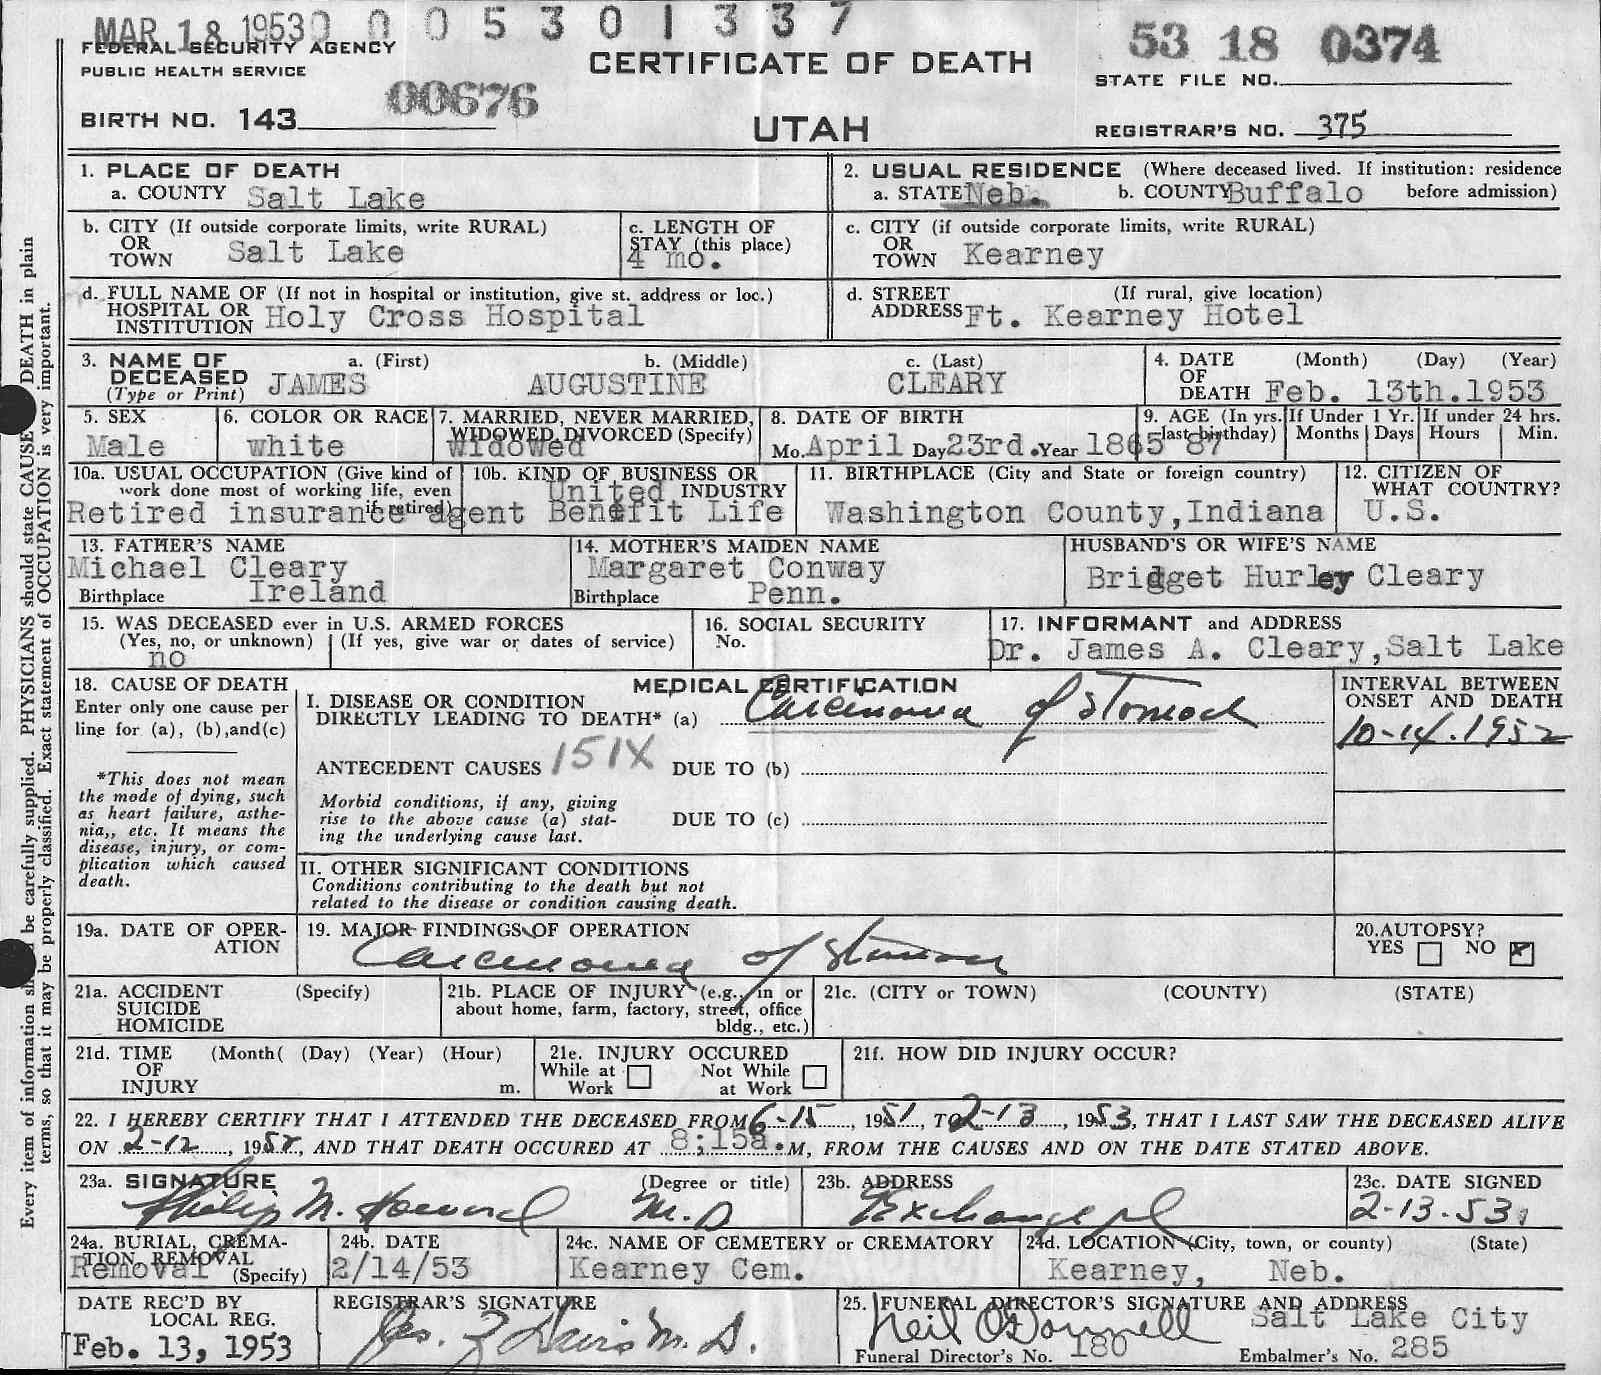 MAR 18 1953 0 0 5 3 0 1 3 3 7
FEDERAL SECURITY AGENCY
PUBLIC HEALTH SERVICE
CERTIFICATE OF DEATH
53 18 0374
STATE FILE NO.
00676
BIRTH NO. 143
UTAH
REGISTRAR'S NO. 375
1. PLACE OF DEATH
a. COUNTY Salt Lake
2. USUAL RESIDENCE (Where deceased lived. If institution: residence before admission)
a. STATE Neb. b. COUNTY Buffalo
b. CITY (If outside corporate limits, write RURAL)
OR
TOWN Salt Lake
c. LENGTH OF
STAY (this place)
4 mo.
c. CITY (if outside corporate limits, write RURAL)
OR
TOWN Kearney
d. FULL NAME OF (If not in hospital or institution, give st. address or loc.)
HOSPITAL OR
INSTITUTION Holy Cross Hospital
d. STREET (If rural, give location)
ADDRESS Ft. Kearney Hotel
3. NAME OF DECEASED (Type or Print)
a. (First) b. (Middle) c. (Last)
JAMES AUGUSTINE CLEARY
4. DATE OF DEATH (Month) (Day) (Year)
Feb. 13th.1953
5. SEX
Male
6. COLOR OR RACE
white
7. MARRIED, NEVER MARRIED,
WIDOWED, DIVORCED (Specify)
widowed
8. DATE OF BIRTH
Mo. April Day 23rd. Year 1865
9. AGE (In yrs. last birthday) If Under 1 Yr. If under 24 hrs.
87 Months Days Hours Min.
10a. USUAL OCCUPATION (Give kind of
work done most of working life, even
if retired)
Retired insurance agent
10b. KIND OF BUSINESS OR
INDUSTRY
United
Benefit Life
11. BIRTHPLACE (City and State or foreign country)
Washington County, Indiana
12. CITIZEN OF
WHAT COUNTRY?
U.S.
13. FATHER'S NAME
Michael Cleary
Birthplace Ireland
14. MOTHER'S MAIDEN NAME
Margaret Conway
Birthplace Penn.
HUSBAND'S OR WIFE'S NAME
Bridget Hurley Cleary
15. WAS DECEASED ever in U.S. ARMED FORCES
(Yes, no, or unknown) (If yes, give war or dates of service)
no
16. SOCIAL SECURITY
No.
17. INFORMANT and ADDRESS
Dr. James A. Cleary, Salt Lake
18. CAUSE OF DEATH
Enter only one cause per
line for (a), (b), and (c)
*This does not mean
the mode of dying, such
as heart failure, asthe-
nia,, etc. It means the
disease, injury, or com-
plication which caused
death.
MEDICAL CERTIFICATION
I. DISEASE OR CONDITION
DIRECTLY LEADING TO DEATH* (a) Carcinoma of Stomach
INTERVAL BETWEEN
ONSET AND DEATH
10-14.1952
ANTECEDENT CAUSES 151X DUE TO (b)
Morbid conditions, if any, giving
rise to the above cause (a) stat-
ing the underlying cause last.
DUE TO (c)
II. OTHER SIGNIFICANT CONDITIONS
Conditions contributing to the death but not
related to the disease or condition causing death.
19a. DATE OF OPER-
ATION
19. MAJOR FINDINGS OF OPERATION
Carcinoma of Stomach
20. AUTOPSY?
YES NO X
21a. ACCIDENT (Specify)
SUICIDE
HOMICIDE
21b. PLACE OF INJURY (e.g., in or
about home, farm, factory, street, office
bldg., etc.)
21c. (CITY or TOWN) (COUNTY) (STATE)
21d. TIME (Month( (Day) (Year) (Hour)
OF
INJURY m.
21e. INJURY OCCURED
While at Not While
Work at Work
21f. HOW DID INJURY OCCUR?
22. I HEREBY CERTIFY THAT I ATTENDED THE DECEASED FROM 6-15, 1951, TO 2-13, 1953, THAT I LAST SAW THE DECEASED ALIVE
ON 2-12, 1952, AND THAT DEATH OCCURED AT 8:15a.M, FROM THE CAUSES AND ON THE DATE STATED ABOVE.
23a. SIGNATURE (Degree or title)
Philip M. Howard M.D
23b. ADDRESS
Exchange pl
23c. DATE SIGNED
2-13-53
24a. BURIAL, CREMA-
TION, REMOVAL
(Specify)
Removal
24b. DATE
2/14/53
24c. NAME OF CEMETERY or CREMATORY
Kearney Cem.
24d. LOCATION (City, town, or county) (State)
Kearney, Neb.
DATE REC'D BY
LOCAL REG.
Feb. 13, 1953
REGISTRAR'S SIGNATURE
Jas. Z Davis M.D.
25. FUNERAL DIRECTOR'S SIGNATURE AND ADDRESS
Neil O'Donnell Salt Lake City
Funeral Director's No. 180 Embalmer's No. 285
Every item of information be carefully supplied. PHYSICIANS should state CAUSE DEATH in plain
terms, so that it may be properly classified. Exact statement of OCCUPATION is very important.